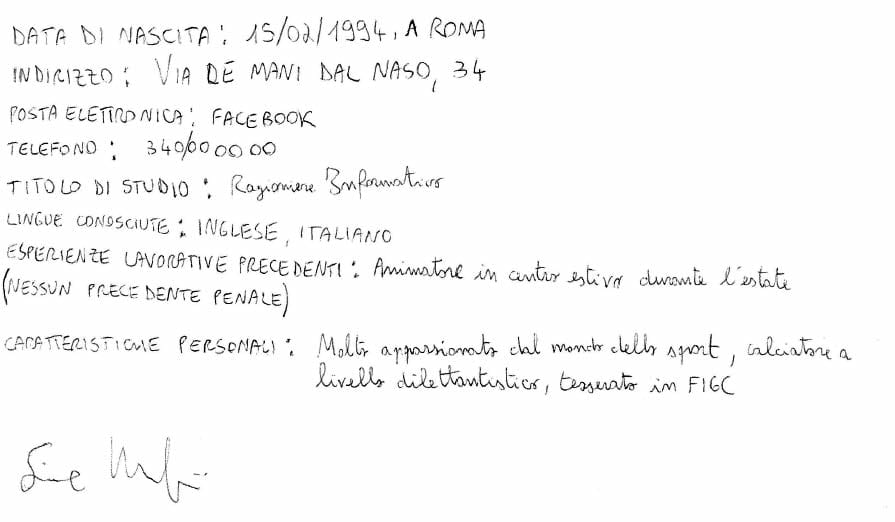 DATA DI NASCITA: 15/02/1994, A ROMA
INDIRIZZO: VIA DE MANI DAL NASO, 34
POSTA ELETTRONICA: FACEBOOK
TELEFONO: 340/0000000
TITOLO DI STUDIO: Ragioniere Informatico
LINGUE CONOSCIUTE: INGLESE, ITALIANO
ESPERIENZE LAVORATIVE PRECEDENTI: Animatore in centro estivo durante l'estate
(NESSUN PRECEDENTE PENALE)
CARATTERISTICHE PERSONALI: Molto appassionato dal mondo dello sport, calciatore a
livello dilettantistico, tesserato in FIGC